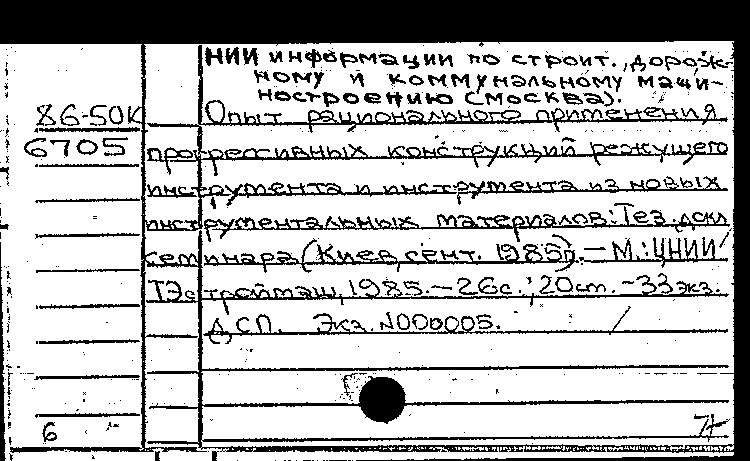 НИИ информации по строит., дорож-
ному и коммунальному маши-
ностроению (Москва).
86-50К Опыт рационального применения
6705 прогрессивных конструкций режущего
инструмента и инструмента из новых
инструментальных материалов: Тез. докл
семинара (Киев, сент. 1985г). – М.: ЦНИИ
ТЭстроймаш, 1985. – 26с.; 20см. – 33экз.
ДСП. Экз. N000005.
6